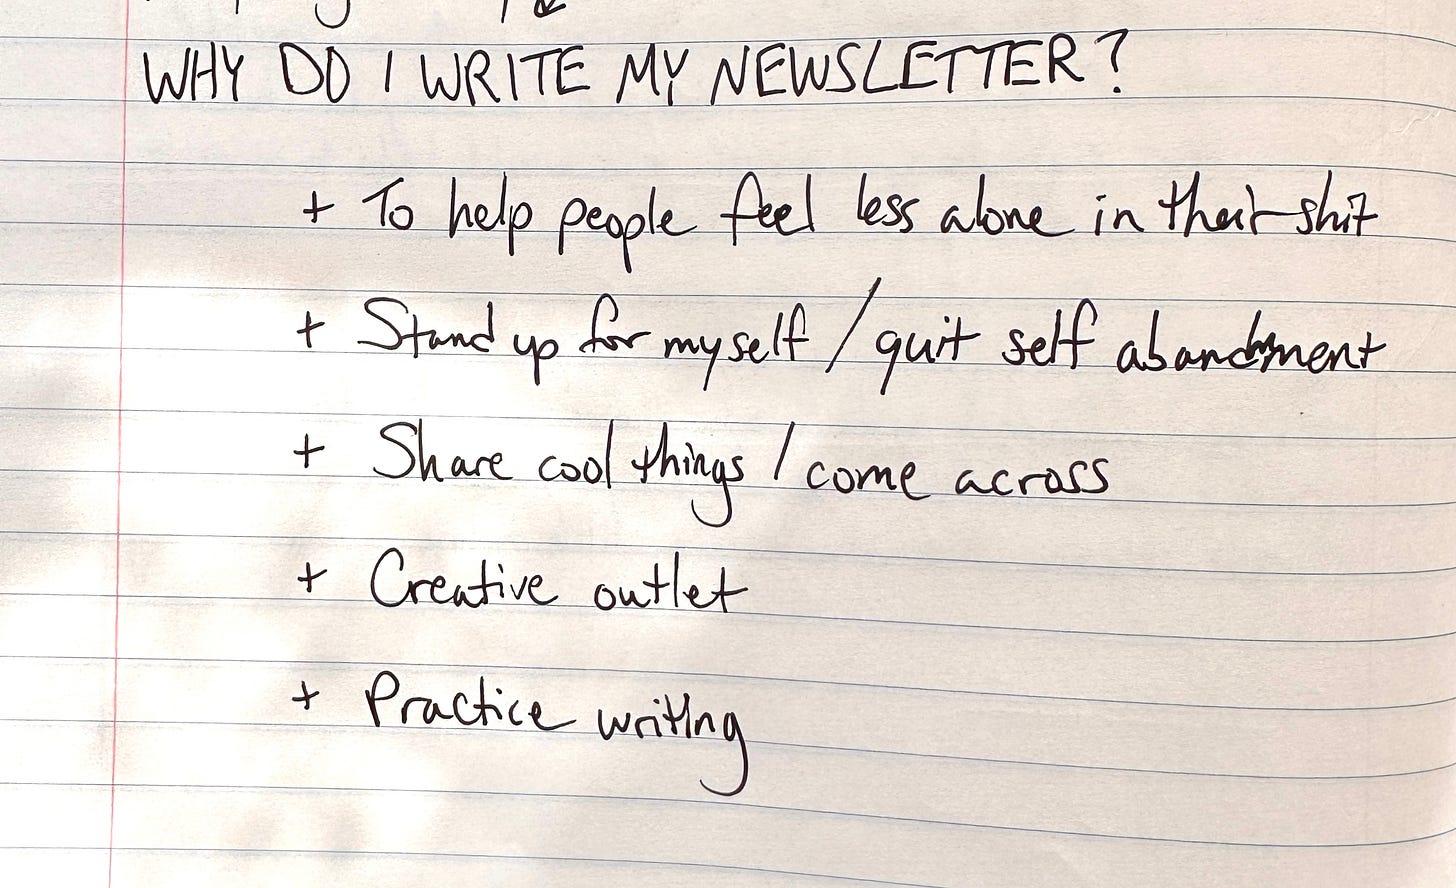 WHY DO I WRITE MY NEWSLETTER?
+ To help people feel less alone in their shit
+ Stand up for myself / quit self abandment
+ Share cool things I come across
+ Creative outlet
+ Practice writing